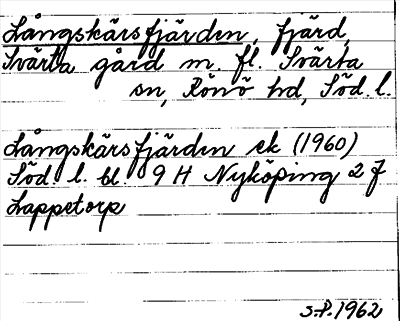 Långskärsfjärden, fjärd,
Svärta gård m. fl. Svärta
sn, Rönö hd, Söd. l.
Långskärsfjärden ek (1960)
Söd l. bl. 9 H Nyköping 2 f
Lappetorp
S.P. 1962